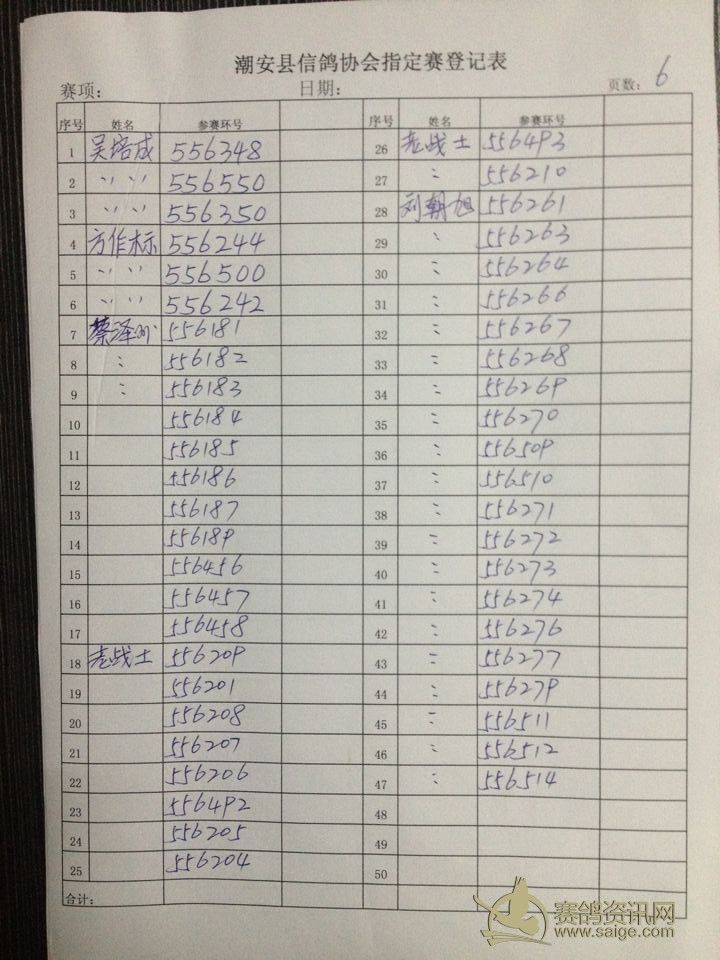 潮安县信鸽协会指定赛登记表
赛项: 日期: 页数: 6
序号 姓名 参赛环号
1 吴培成 556348
2 〃 〃 556550
3 〃 〃 556350
4 方作标 556244
5 〃 〃 556500
6 〃 〃 556242
7 蔡泽 556181
8 〃 556182
9 〃 556183
10 556184
11 556185
12 556186
13 556187
14 556189
15 556456
16 556457
17 556458
18 老战士 556209
19 556201
20 556208
21 556207
22 556206
23 556492
24 556205
25 556204
合计:
序号 姓名 参赛环号
26 老战士 556493
27 〃 556210
28 刘朝旭 556261
29 〃 556263
30 〃 556264
31 〃 556266
32 〃 556267
33 〃 556268
34 〃 556269
35 〃 556270
36 〃 556509
37 〃 556510
38 〃 556271
39 〃 556272
40 〃 556273
41 〃 556274
42 〃 556276
43 〃 556277
44 〃 556279
45 〃 556511
46 〃 556512
47 〃 556514
48
49
50
赛鸽资讯网
www.saige.com